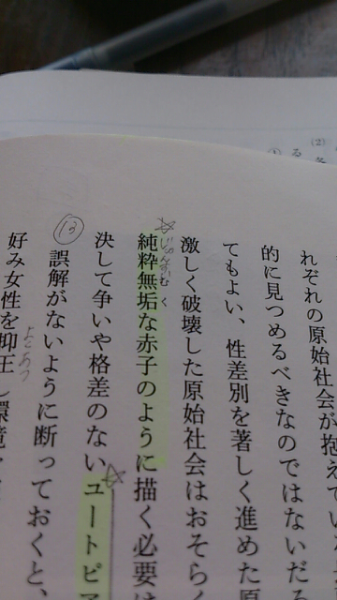 (2)
れぞれの原始社会が抱えてい
的に見つめるべきなのではないだろ
てもよい、性差別を著しく進めた原
激しく破壊した原始社会はおそらく
じゅんすいむく
純粋無垢な赤子のように描く必要は
決して争いや格差のない、ユートピア
13
誤解がないように断っておくと、
よくあつ
好み女性を抑圧し環境